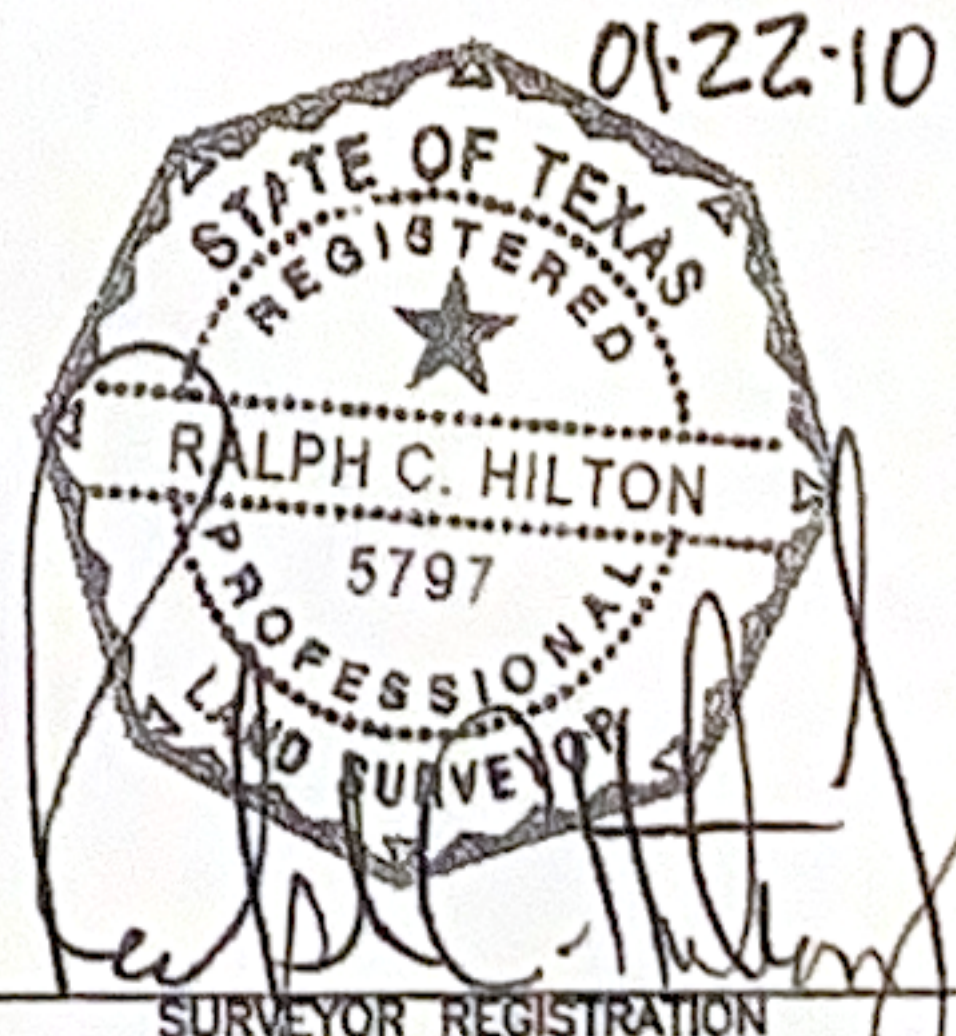 01-22-10
STATE OF TEXAS
REGISTERED
RALPH C. HILTON
5797
PROFESSIONAL
LAND SURVEYOR
Ralph C. Hilton
SURVEYOR REGISTRATION